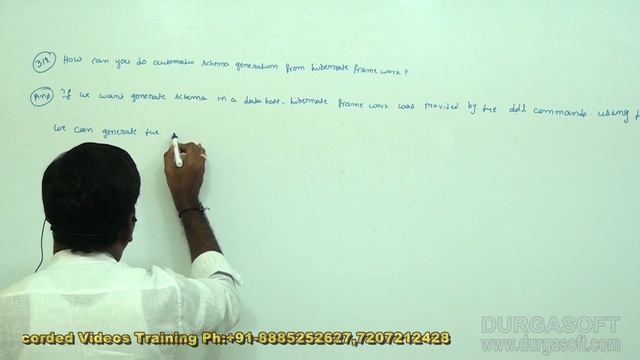 31Q: How can you do automatic schema generation from hibernate frame work?
Ans If we want generate schema in a data base, hibernate frame work was provided by the ddl commands. using
we can generate the
DURGASOFT
www.durgasoft.com
corded Videos Training Ph:+91-8885252627,7207212428